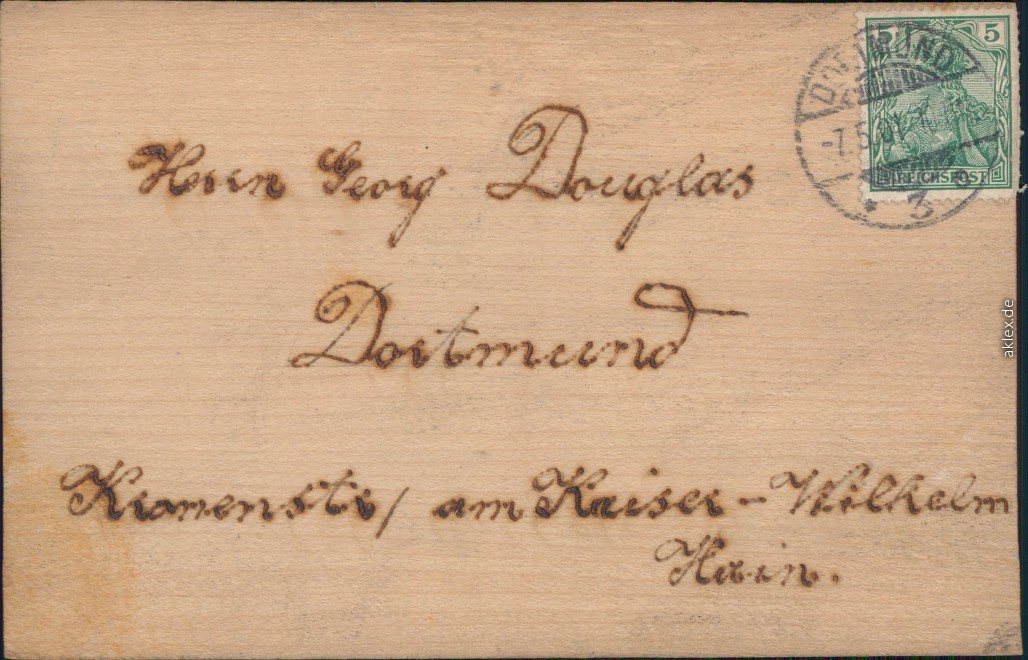 5 5
DORTMUND
-7.5.01
* 3
REICHSPOST
Herrn Georg Douglas
Dortmund
Kronenstr/ am Kaiser-Wilhelm
Hain.
aklex.de